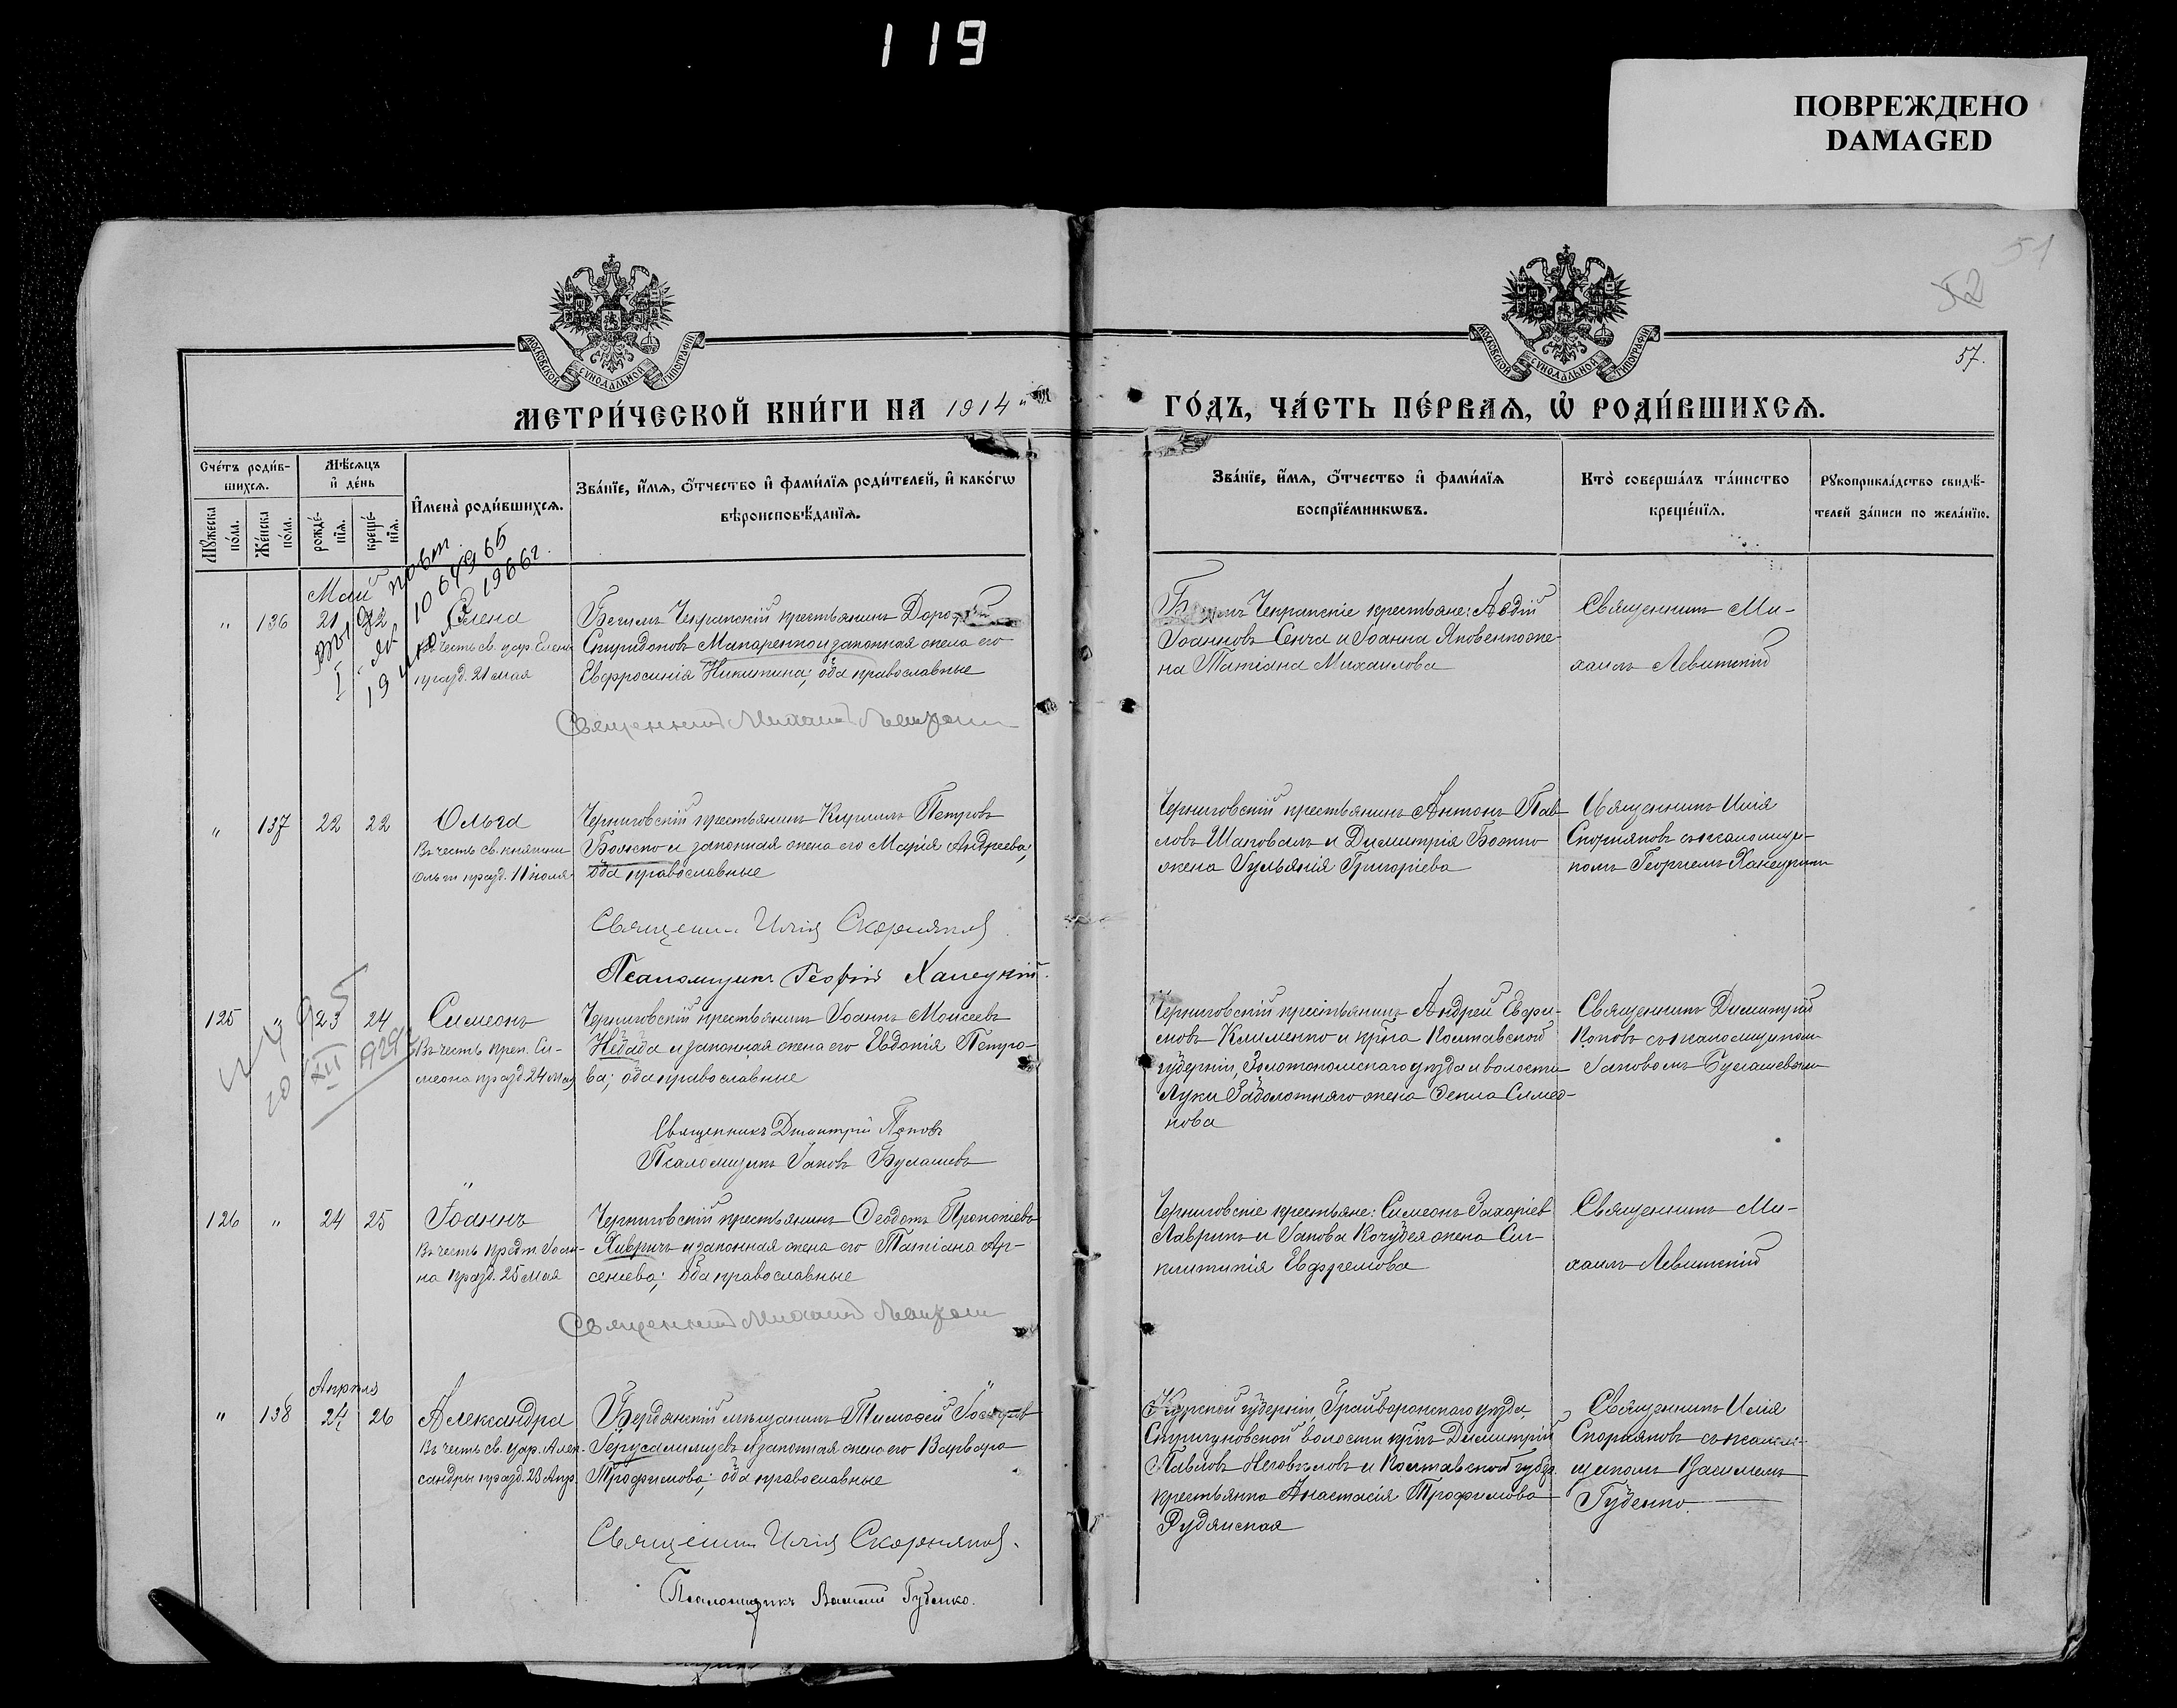 119
ПОВРЕЖДЕНО
DAMAGED
51
52
57.
МОСКОВСКОЙ СѴНОДАЛЬНОЙ ТИПОГРАФІИ
МОСКОВСКОЙ СѴНОДАЛЬНОЙ ТИПОГРАФІИ
МЕТРИ́ЧЕСКОЙ КНИ́ГИ НА 1914
ГО́ДЪ, ЧА́СТЬ ПЕ́РВАѦ, Ѡ҆ РОДИ́ВШИХСѦ.
Сче́тъ роди́в-
шихсѧ.
Мꙋжеска по́ла.
Же́нска по́ла.
Мѣ́сѧцъ
и҆ де́нь
рожде́-
нїѧ.
креще́-
нїѧ.
И҆мена̀ роди́вшихсѧ.
Зва́нїе, и҆́мѧ, ѻ҆́тчество и҆ фами́лїѧ роди́телей, и҆ како́гѡ
вѣроисповѣ́данїѧ.
Зва́нїе, и҆́мѧ, ѻ҆́тчество и҆ фами́лїѧ
воспрїе́мникѡвъ.
Кто̀ соверша́лъ та́инство
креще́нїѧ.
Рꙋкоприкла́дство свидѣ́-
телей за́писи по жела́нїю.
повт.
1966г.
Май
" 136 21 22 Елена
Въ честь св. цар. Елены
празд. 21 мая
Бегимъ Чекракскій крестьянинъ Дорофей
Спиридоновъ Макаренко и законная жена его
Евфросинія Никитина; оба православные
Священникъ Михаилъ Левитскій
Чекракскіе крестьяне: Авдій
Іоанновъ Сенча и Іоанна Яковенко же-
на Татіана Михаилова
Священникъ Ми-
хаилъ Левитскій
" 137 22 22 Ольга
Въ честь св. княгини
Ольги празд. 11 іюля
Черниговскій крестьянинъ Кириллъ Петровъ
Божко и законная жена его Марія Андреева,
оба православные
Священникъ Илія Скорняковъ
Псаломщикъ Георгій Ханецкій
Черниговскій крестьянинъ Антонъ Пав-
ловъ Шаповалъ и Димитрія Божко
жена Іульянія Григоріева
Священникъ Илія
Скорняковъ съ псаломщи-
комъ Георгіемъ Ханецкимъ
125 " 23 24 Симеонъ
Въ честь преп. Си-
меона празд. 24 мая
Черниговскій крестьянинъ Іоаннъ Моисеевъ
Небаба и законная жена его Евдокія Петро-
ва; оба православные
Священникъ Димитрій Поповъ
Псаломщикъ Іаковъ Булашевъ
Черниговскій крестьянинъ Андрей Евфи-
мовъ Клименко и кр-на Полтавской
губерніи, Золотоношскаго уѣзда и волости
Луки Заболотняго жена Ѳекла Симео-
нова
Священникъ Димитрій
Поповъ съ псаломщикомъ
Іаковомъ Булашевымъ
126 " 24 25 Іоаннъ
Въ честь предт. Іоан-
на празд. 25 мая
Черниговскій крестьянинъ Ѳеодотъ Прокопіевъ
Лавричъ и законная жена его Татіана Ар-
сеніева; оба православные
Священникъ Михаилъ Левитскій
Черниговскіе крестьяне: Симеонъ Захаріевъ
Лаврикъ и Іакова Кочубея жена Син-
клитикія Евфремова
Священникъ Ми-
хаилъ Левитскій
Апрѣля
" 138 24 26 Александра
Въ честь св. цар. Алек-
сандры празд. 23 Апр.
Бердянскій мѣщанинъ Тимоѳей
Іерусалимцевъ и законная жена его Варвара
Трофимова; оба православные
Священникъ Илія Скорняковъ.
Псаломщикъ Василій Губенко.
Курской губерніи, Грайворонскаго уѣзда,
Стригуновской волости кр-нъ Димитрій
Павловъ и Полтавской губер.
крестьянка Анастасія Трофимова
Рудянская
Священникъ Илія
Скорняковъ съ псалом-
щикомъ Василіемъ
Губенко.